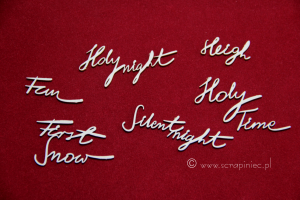 Holy night
Heigh
Fun
Holy
Time
First
Snow
Silent
night
© www.scrapiniec.pl